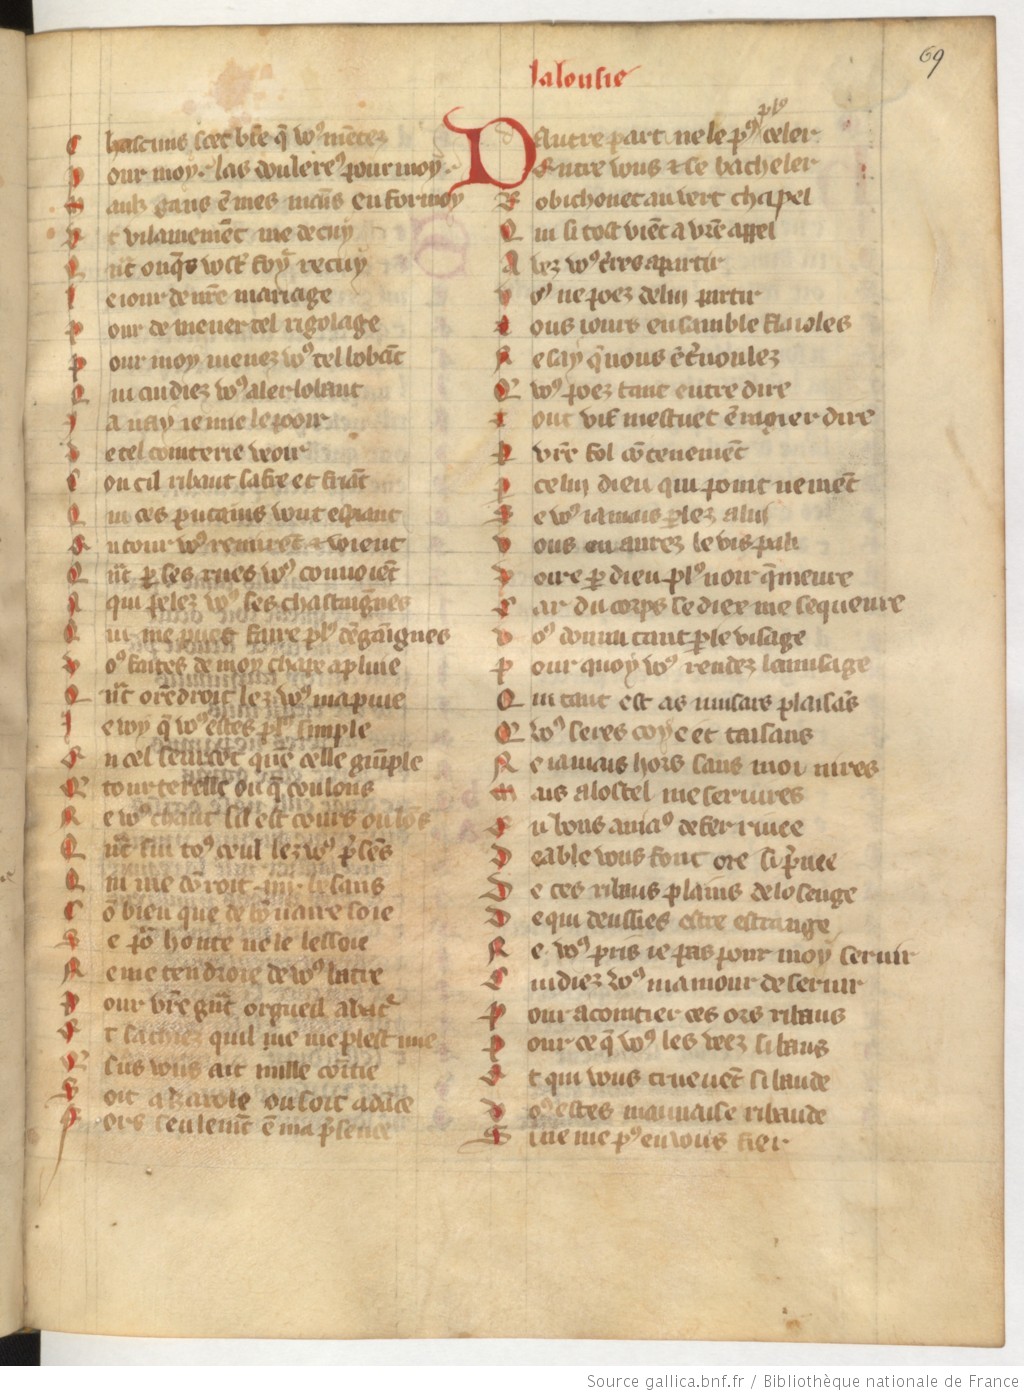 69
Jalousie
Chascuns scet bñe q̃ vo⁹ mẽtez
Pour moy . las doulere⁹ pour moy .
Maulz gans ẽ mes mãis enformoy
Et vilainemẽt me decuy
Qñt onq̃s vostr̃ foy recuy
Le iour de nr̃e mariage
Pour de mener tel rigolage
Pour moy menez vo⁹ tel bobãt
Qui cuidiez vo⁹ aler lobant
Ja nay ie mie le pooir
De tel cointerie veoir
Con cil ribaut safre et friãt
Qui ces putains vont espiant
Entour vo⁹ remirẽt et voient
Qñt ꝑ les rues vo⁹ convoiẽt
A qui pelez vo⁹ ses chastaiḡnes
Qui me puet faire pl⁹ dẽgaĩgnes
Vo⁹ faites de moy chape a pluie
Qñt orẽdroit lez vo⁹ mapuie
Je voy q̃ vo⁹ estes pl⁹ simple
En cel seurcot que celle guĩple
Q tourterelle ou q̃ coulons
Ne vo⁹ chaut sil est cours ou lõs
Qñt sui to⁹ ceul lez vo⁹ p̃sẽs
Qui me dõroit .iiij. besans
Cõ bien que de bõnaire soie
Se põ honte ne le lessoie
Ne me tendroie de vo⁹ batre
Pour vr̃e gñt orgueil abatr̃
Et sachiez quil me me plest mie
Sus vous ait nulle cõitie
Soit a karole ou soit a dãce
Fors seulemẽt ẽ ma p̃sence
Dautre part ne le p⁹ pl⁹ celer
Entre vous et ce bacheler
Robichonet au vert chapel
Qui si tost viẽt a vr̃e appel
Avez vo⁹ tr̃es a partir
Vo⁹ ne poez de lui partir
Tous iours ensamble flaioles
Ne say q̃ vous ẽtr̃uoulez
Q vo⁹ poez tant entre dire
Tout vif mestuet ẽragier dire
P vr̃e fol cõtenemẽt
P celui dieu qui point ne mẽt
Se vo⁹ iamais ꝑlez a lui
Vous en aurez le vis pali
Voire ꝑ dieu pl⁹ noir q̃ meure
Car du corps se diex me sequeure
Vo⁹ donrai tant ꝑ le visage
Pour quoy vo⁹ rendez lamusage
Qui tant est as musars plaisãs
Q vo⁹ seres coye et taisans
Ne iamais hors sans moi nires
Mais a lostel me servires
En bons aniau⁹ de fer rivee
Deable vous font ore si p̃vee
De ces ribaus plains de losenge
De qui deussies estre estrange
Ne vo⁹ pris ie pas pour moy servir
Cuidiez vo⁹ mamour deservir
Pour acointier ces ors ribaus
Pour ce q̃ vo⁹ les veez si baus
Et qui vous truevẽt si baude
Vo⁹ estes mauvaise ribaude
Si ne me p⁹ en vous fier
Source gallica.bnf.fr / Bibliothèque nationale de France